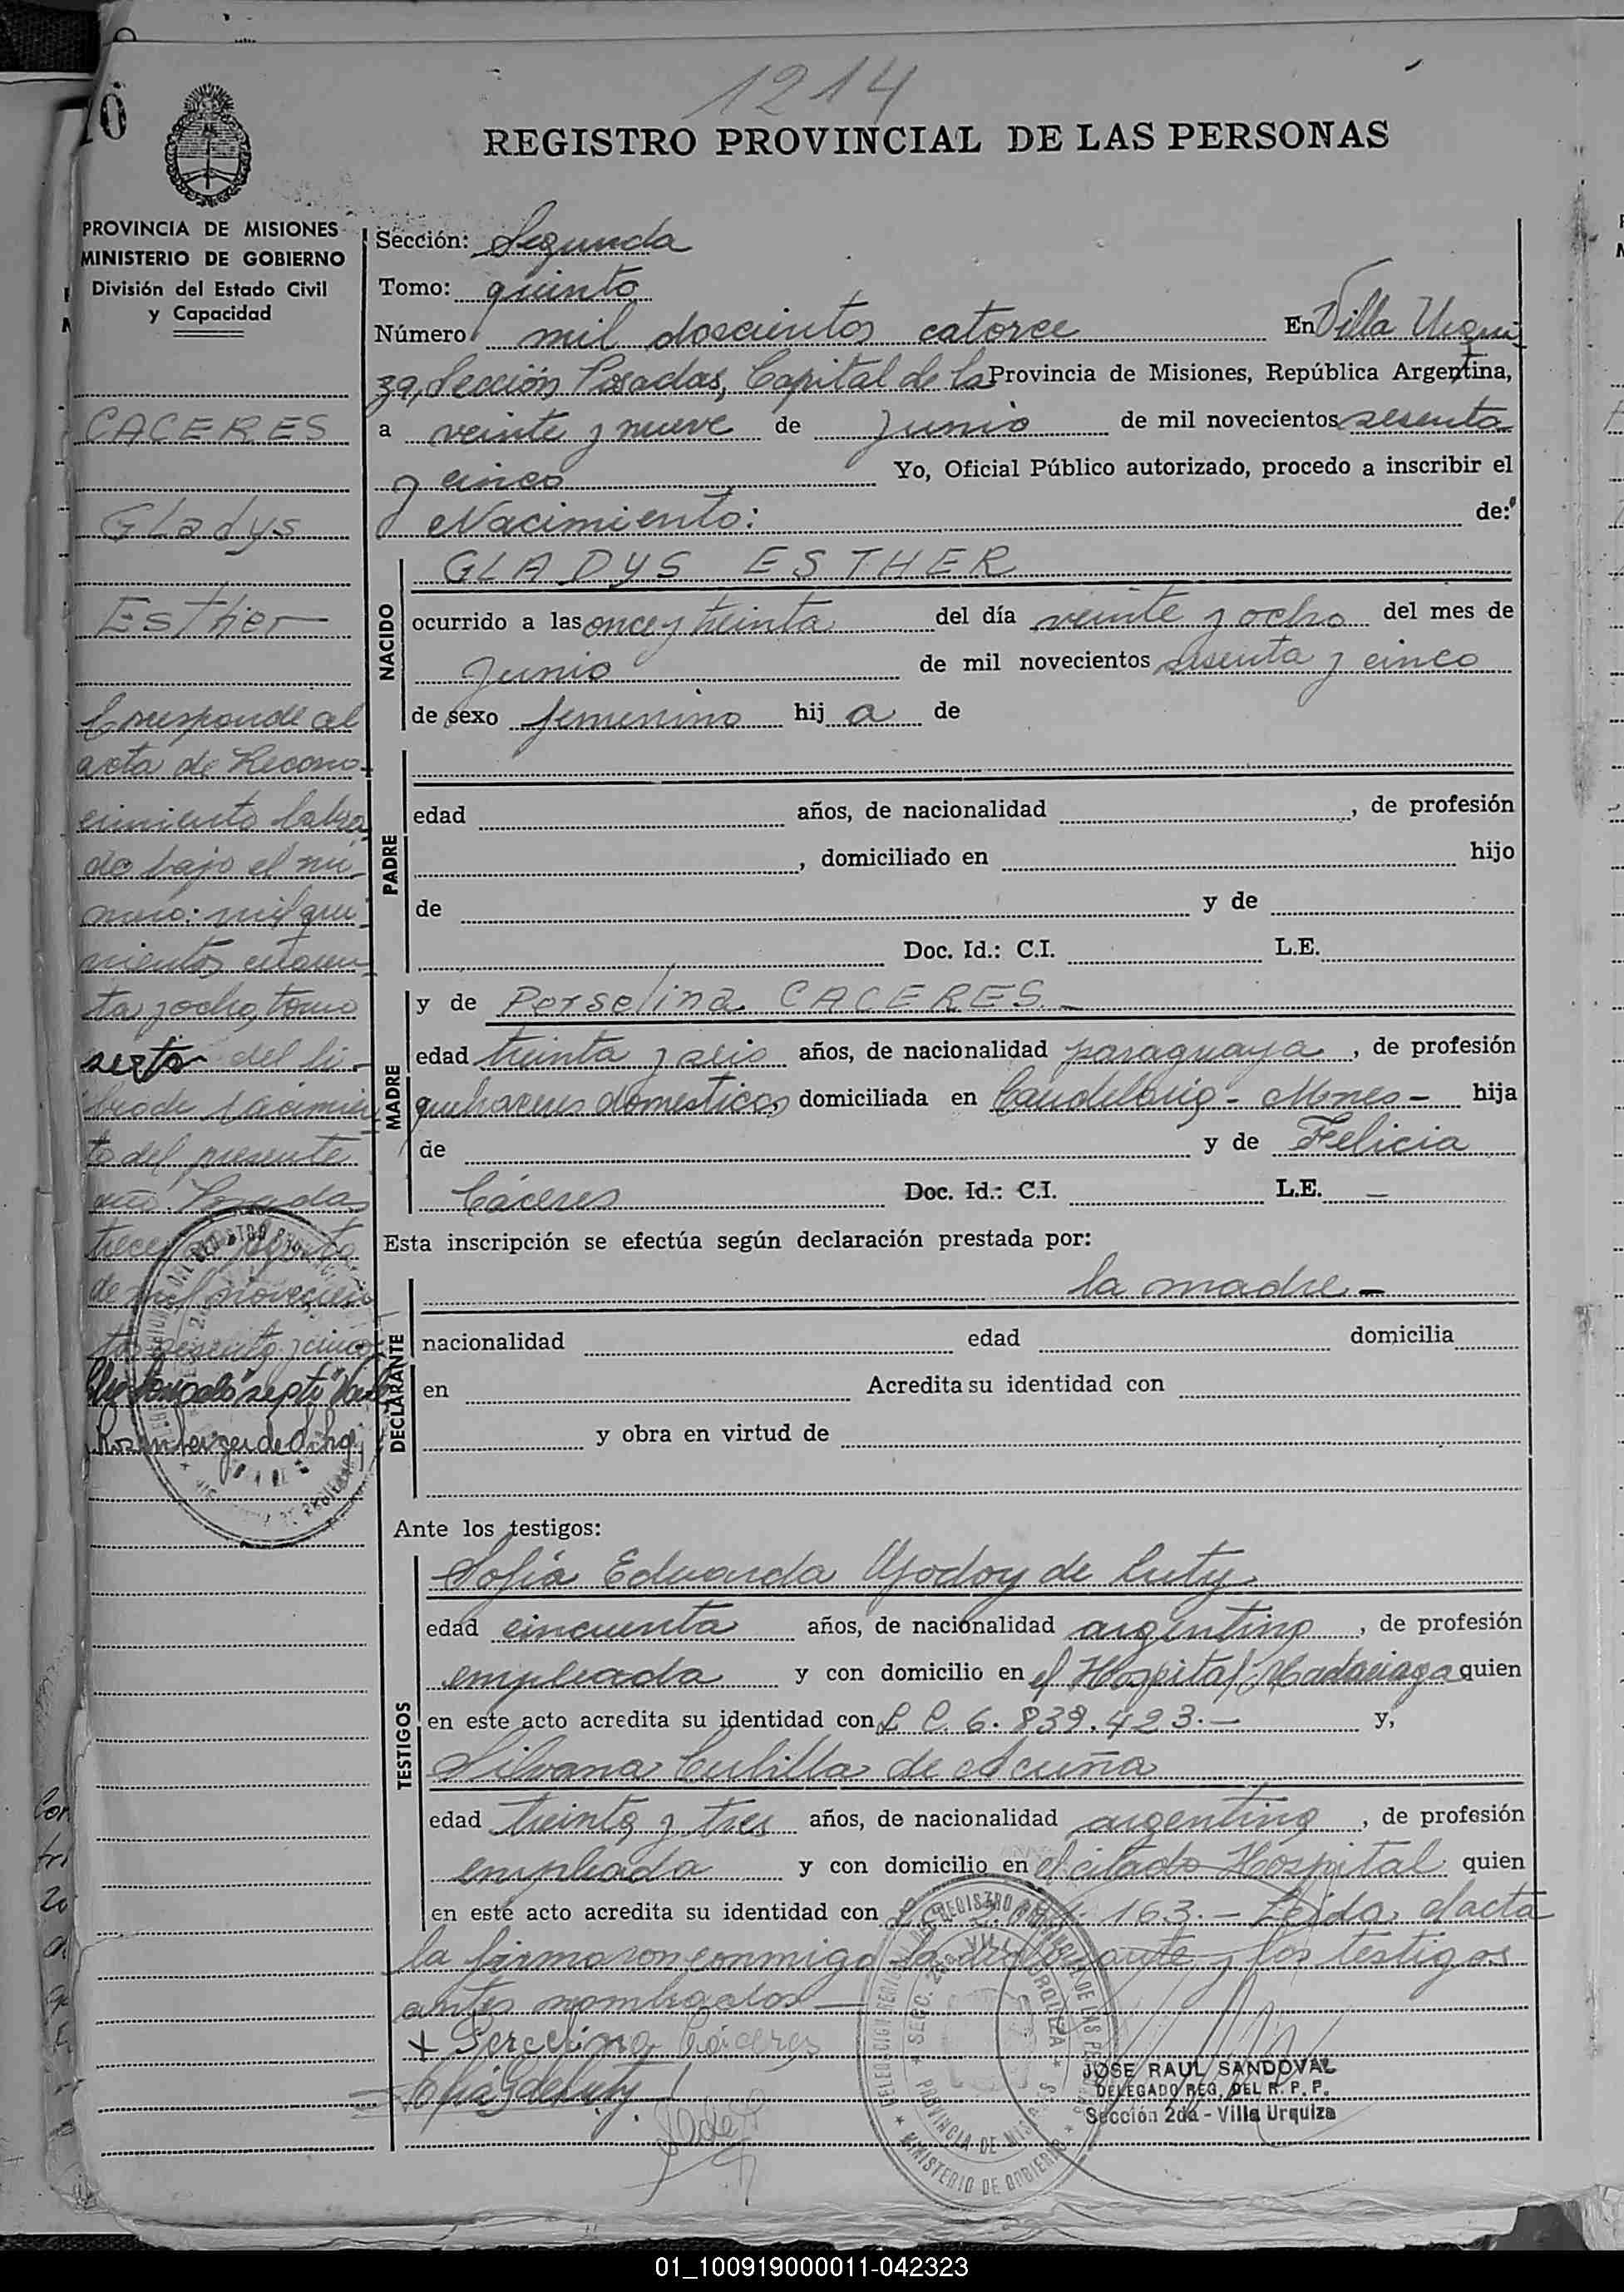 1214
10
REGISTRO PROVINCIAL DE LAS PERSONAS
PROVINCIA DE MISIONES
MINISTERIO DE GOBIERNO
División del Estado Civil
y Capacidad
CACERES
Gladys
Esther
Corresponde al
acta de Recono-
cimiento labra-
do bajo el nú-
mero: mil qui-
nientos cuaren-
ta y ocho, tomo
sexto del li-
bro de Nacimien
to del presente
año. Posadas
trece agosto
de mil novecien
tos sesenta y cinco
Sección: Segunda
Tomo: quinto
Número mil doscientos catorce En Villa Urqui
za, Sección Posadas, Capital de la Provincia de Misiones, República Argentina,
a veinte y nueve de Junio de mil novecientos sesenta
y cinco Yo, Oficial Público autorizado, procedo a inscribir el
Nacimiento: de:
NACIDO
GLADYS ESTHER
ocurrido a las once y treinta del día veinte y ocho del mes de
Junio de mil novecientos sesenta y cinco
de sexo femenino hij a de
PADRE
edad años, de nacionalidad , de profesión
, domiciliado en hijo
de y de
Doc. Id.: C.I. L.E.
MADRE
y de Porselina CACERES.-
edad treinta y seis años, de nacionalidad paraguaya , de profesión
quehaceres domesticos, domiciliada en Candelaria - Mnes - hija
de y de Felicia
Cáceres Doc. Id.: C.I. L.E. -
Esta inscripción se efectúa según declaración prestada por:
DECLARANTE
la madre.-
nacionalidad edad domicilia
en Acredita su identidad con
y obra en virtud de
Ante los testigos:
TESTIGOS
Sofía Eduarda Godoy de Luty
edad cincuenta años, de nacionalidad argentina , de profesión
empleada y con domicilio en el Hospital Madariaga quien
en este acto acredita su identidad con L C. 6.839.423.- y,
Silvana Cubilla de Acuña
edad treinta y tres años, de nacionalidad argentina , de profesión
empleada y con domicilio en el citado Hospital quien
en este acto acredita su identidad con 163.- Leída el acta
la firmaron conmigo la declarante y los testigos
antes nombrados
+ Percelina Cáceres
JOSE RAUL SANDOVAL
DELEGADO REG. DEL R. P. P.
Sección 2da - Villa Urquiza
SECC. 2da VILLA URQUIZA
PROVINCIA DE MISIONES
MINISTERIO DE GOBIERNO
01_100919000011-042323